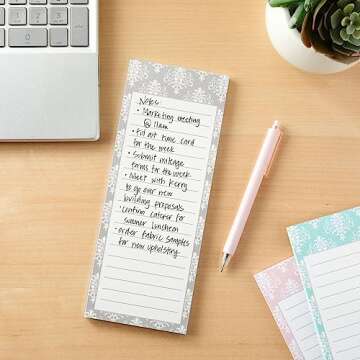 Notes:
• Marketing meeting
@ 11am
• Fill out time card
for the week
• Submit mileage
forms for the week
• Meet with Kerry
to go over new
building proposals
• Confirm caterer for
summer luncheon
• Order fabric samples
for new upholstery